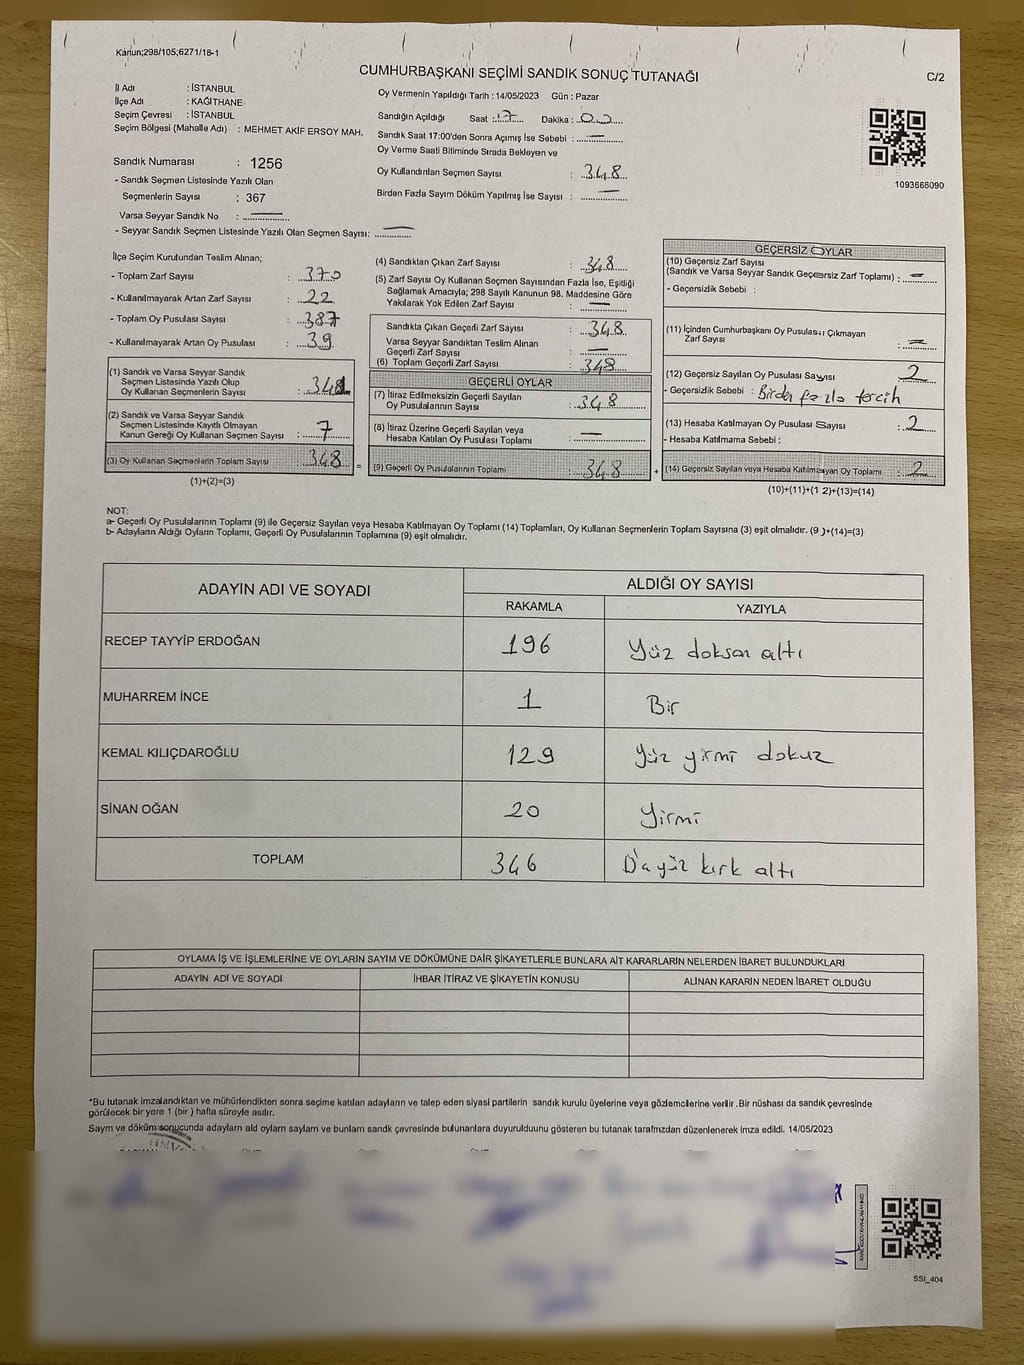 Kanun;298/105;6271/18-1
CUMHURBAŞKANI SEÇİMİ SANDIK SONUÇ TUTANAĞI
C/2
İl Adı : İSTANBUL
İlçe Adı : KAĞITHANE
Seçim Çevresi : İSTANBUL
Seçim Bölgesi (Mahalle Adı) : MEHMET AKİF ERSOY MAH.
Oy Vermenin Yapıldığı Tarih : 14/05/2023 Gün : Pazar
Sandığın Açıldığı Saat : 17 Dakika : 00
Sandık Saat 17:00'den Sonra Açımış İse Sebebi : —
Oy Verme Saati Bitiminde Sırada Bekleyen ve
Oy Kullandırılan Seçmen Sayısı : 348
Birden Fazla Sayım Döküm Yapılmış İse Sayısı : —
1093666090
Sandık Numarası : 1256
- Sandık Seçmen Listesinde Yazılı Olan
Seçmenlerin Sayısı : 367
Varsa Seyyar Sandık No : —
- Seyyar Sandık Seçmen Listesinde Yazılı Olan Seçmen Sayısı: —
İlçe Seçim Kurulundan Teslim Alınan;
- Toplam Zarf Sayısı : 370
- Kullanılmayarak Artan Zarf Sayısı : 22
- Toplam Oy Pusulası Sayısı : 387
- Kullanılmayarak Artan Oy Pusulası : 39
(1) Sandık ve Varsa Seyyar Sandık
Seçmen Listesinde Yazılı Olup
Oy Kullanan Seçmenlerin Sayısı : 348
(2) Sandık ve Varsa Seyyar Sandık
Seçmen Listesinde Kayıtlı Olmayan
Kanun Gereği Oy Kullanan Seçmen Sayısı : 7
(3) Oy Kullanan Seçmenlerin Toplam Sayısı : 348
(1)+(2)=(3)
(4) Sandıktan Çıkan Zarf Sayısı : 348
(5) Zarf Sayısı Oy Kullanan Seçmen Sayısından Fazla İse, Eşitliği
Sağlamak Amacıyla; 298 Sayılı Kanunun 98. Maddesine Göre
Yakılarak Yok Edilen Zarf Sayısı : —
Sandıkta Çıkan Geçerli Zarf Sayısı : 348
Varsa Seyyar Sandıktan Teslim Alınan
Geçerli Zarf Sayısı : —
(6) Toplam Geçerli Zarf Sayısı : 348
GEÇERLİ OYLAR
(7) İtiraz Edilmeksizin Geçerli Sayılan
Oy Pusulalarının Sayısı : 348
(8) İtiraz Üzerine Geçerli Sayılan veya
Hesaba Katılan Oy Pusulası Toplamı : —
= (9) Geçerli Oy Pusulalarının Toplamı : 348 +
GEÇERSİZ OYLAR
(10) Geçersiz Zarf Sayısı
(Sandık ve Varsa Seyyar Sandık Geçersiz Zarf Toplamı) : —
- Geçersizlik Sebebi :
(11) İçinden Cumhurbaşkanı Oy Pusulası Çıkmayan
Zarf Sayısı : —
(12) Geçersiz Sayılan Oy Pusulası Sayısı : 2
- Geçersizlik Sebebi : Birden fazla tercih
(13) Hesaba Katılmayan Oy Pusulası Sayısı : 2
- Hesaba Katılmama Sebebi :
(14) Geçersiz Sayılan veya Hesaba Katılmayan Oy Toplamı : 2
(10)+(11)+(1 2)+(13)=(14)
NOT:
a- Geçerli Oy Pusulalarının Toplamı (9) ile Geçersiz Sayılan veya Hesaba Katılmayan Oy Toplamı (14) Toplamları, Oy Kullanan Seçmenlerin Toplam Sayısına (3) eşit olmalıdır. (9 )+(14)=(3)
b- Adayların Aldığı Oyların Toplamı, Geçerli Oy Pusulalarının Toplamına (9) eşit olmalıdır.
ADAYIN ADI VE SOYADI
ALDIĞI OY SAYISI
RAKAMLA YAZIYLA
RECEP TAYYİP ERDOĞAN 196 Yüz doksan altı
MUHARREM İNCE 1 Bir
KEMAL KILIÇDAROĞLU 129 Yüz yirmi dokuz
SİNAN OĞAN 20 Yirmi
TOPLAM 346 yüz kırk altı
OYLAMA İŞ VE İŞLEMLERİNE VE OYLARIN SAYIM VE DÖKÜMÜNE DAİR ŞİKAYETLERLE BUNLARA AİT KARARLARIN NELERDEN İBARET BULUNDUKLARI
ADAYIN ADI VE SOYADI İHBAR İTİRAZ VE ŞİKAYETİN KONUSU ALINAN KARARIN NEDEN İBARET OLDUĞU
*Bu tutanak imzalandıktan ve mühürlendikten sonra seçime katılan adayların ve talep eden siyasi partilerin sandık kurulu üyelerine veya gözlemcilerine verilir .Bir nüshası da sandık çevresinde
görülecek bir yere 1 (bir ) hafta süreyle asılır.
Sayım ve döküm sonucunda adayların ald oylarn saylarn ve bunlarn sandk çevresinde bulunanlara duyurulduunu gösteren bu tutanak tarafmzdan düzenlenerek imza edildi. 14/05/2023
SSI_404